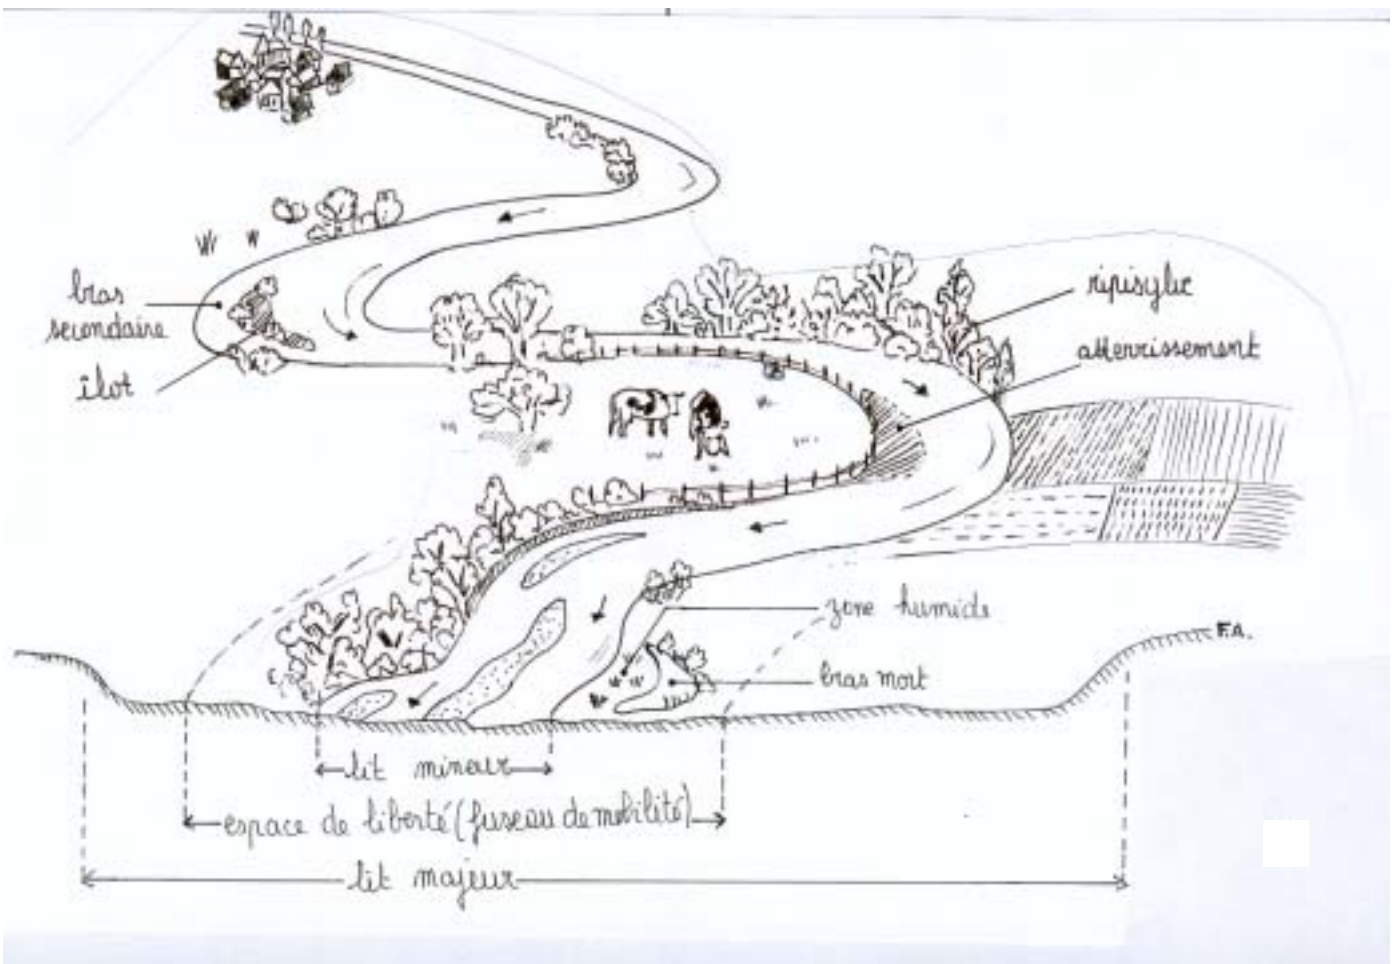 bras
secondaire
îlot
ripisylve
atterrissement
zone humide
bras mort
F.A.
lit mineur
espace de liberté (fuseau de mobilité)
lit majeur